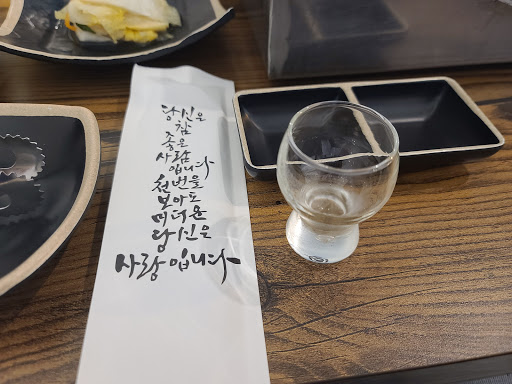 당신은
참
좋은
사람
입니다
천번을
보아도
미더운
당신은
사랑입니다